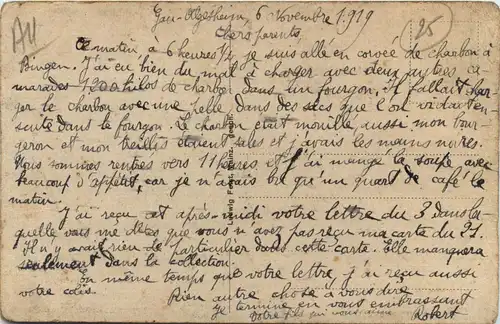 Gau-Algesheim, 6 Novembre 1919
25
Chers parents,
Ce matin à 6 heures 1/4 je suis allé en corvée de charbon à
Bingen. J'ai eu bien du mal à charger avec deux autres ca-
marades 1200 kilos de charbon dans un fourgon. Il fallait char-
ger le charbon avec une pelle dans des sacs que l'on vidait en-
suite dans le fourgon. Le charbon était mouillé aussi mon bour-
geron et mon treillis étaient sales et j'avais les mains noires.
Nous sommes rentrés vers 11 heures et j'ai mangé la soupe avec
beaucoup d'appétit, car je n'avais bu qu'un quart de café le
matin.
J'ai reçu cet après-midi votre lettre du 3 dans la-
quelle vous me dites que vous n'avez pas reçu ma carte du 21.
Il n'y avait rien de particulier dans cette carte. Elle manquera
seulement dans la collection.
En même temps que votre lettre, j'ai reçu aussi
votre colis.
Rien autre chose à vous dire
je termine en vous embrassant
Votre fils qui vous aime
Robert